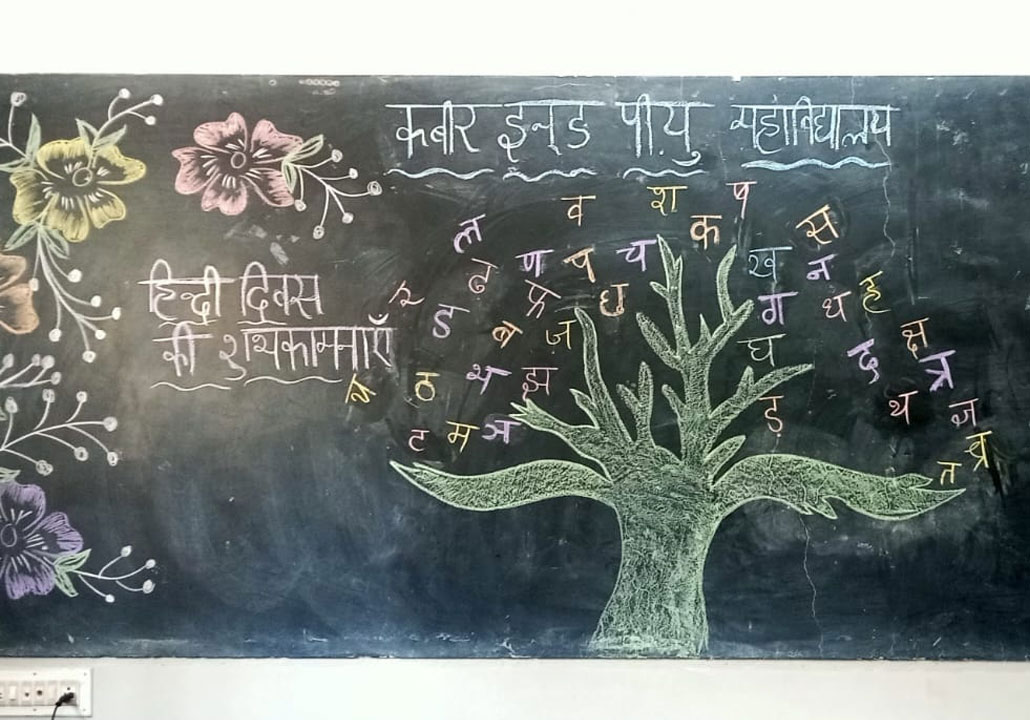 कबीर इन्ड पी.यु महाविद्यालय
हिन्दी दिवस
की शुभकामनाएँ
व श क ष
ल ण प च ख न स
ढ फ्र छ ग ध ह
र ड ब ज घ द क्ष
ठ भ झ ड़ त्र
ट म ञ थ ज्ञ
त श्र